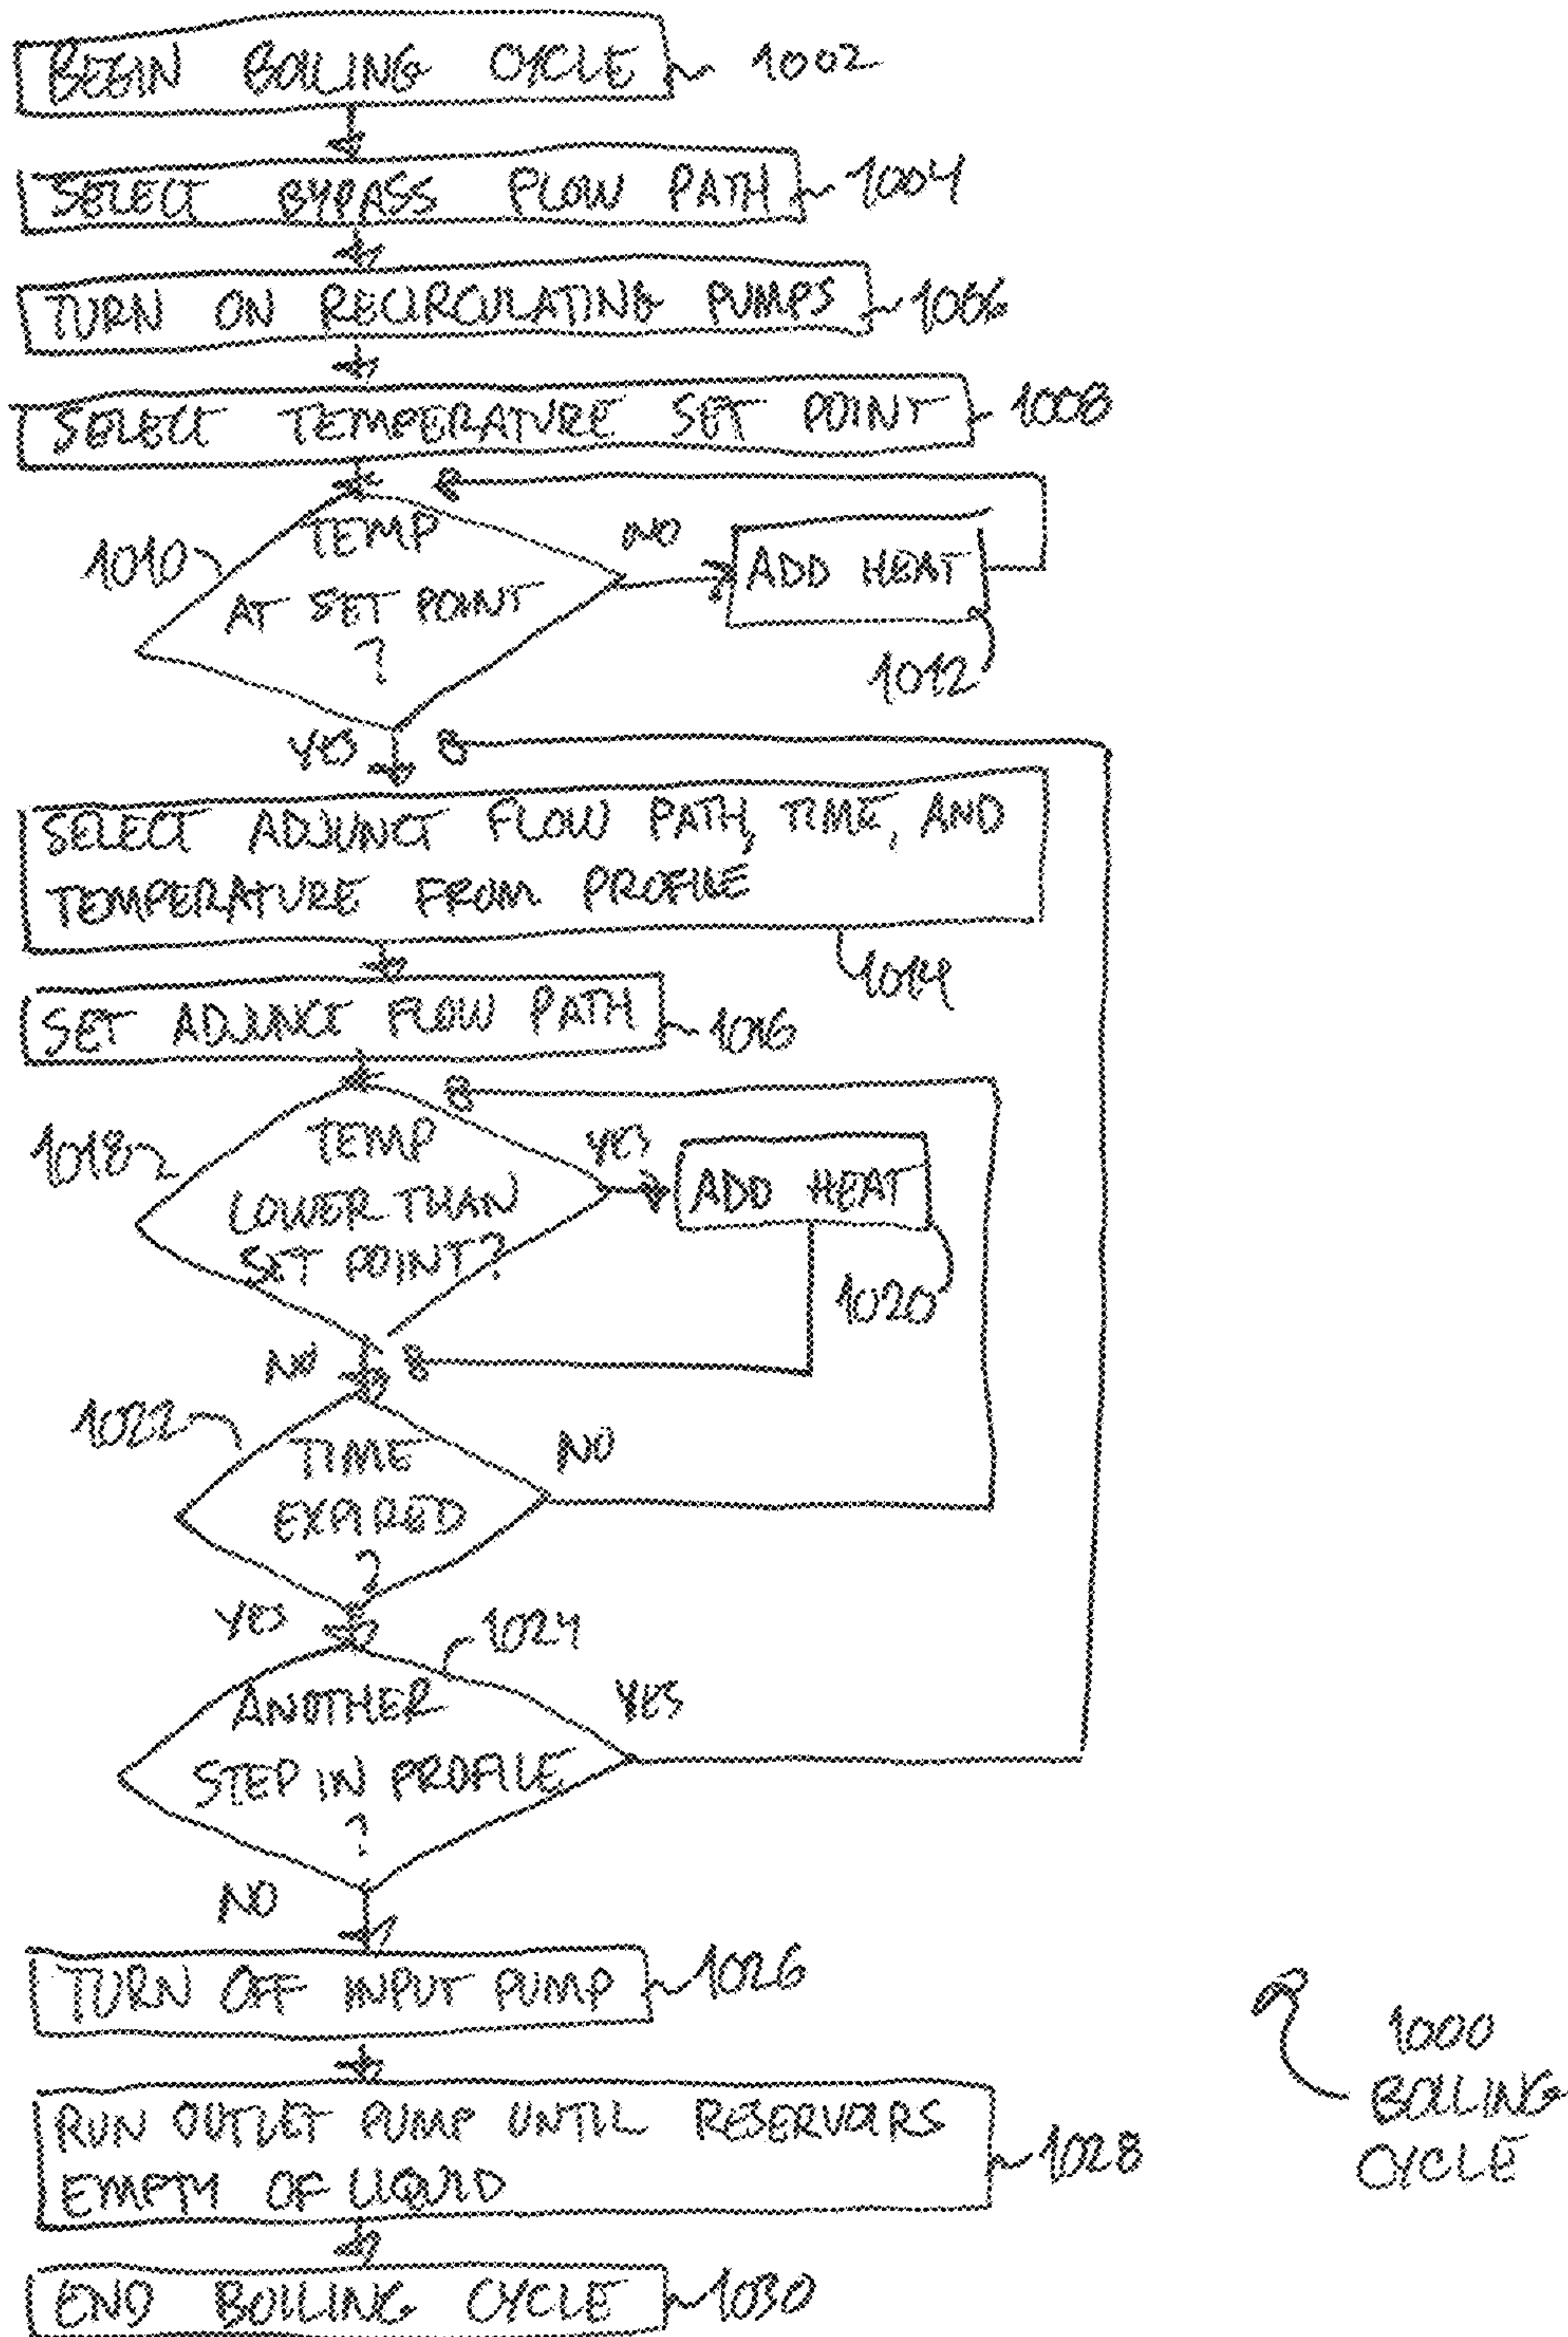 BEGIN BOILING CYCLE 1002
SELECT BYPASS FLOW PATH 1004
TURN ON RECIRCULATING PUMPS 1006
SELECT TEMPERATURE SET POINT 1008
1010
TEMP
AT SET POINT
?
NO
ADD HEAT
1012
YES
SELECT ADJUNCT FLOW PATH, TIME, AND
TEMPERATURE FROM PROFILE
1014
SET ADJUNCT FLOW PATH 1016
1018
TEMP
LOWER THAN
SET POINT?
YES
ADD HEAT
1020
NO
1022
TIME
EXPIRED
?
NO
YES
1024
ANOTHER
STEP IN PROFILE
?
YES
NO
TURN OFF INPUT PUMP 1026
RUN OUTLET PUMP UNTIL RESERVOIRS
EMPTY OF LIQUID
1028
END BOILING CYCLE 1030
1000
BOILING
CYCLE